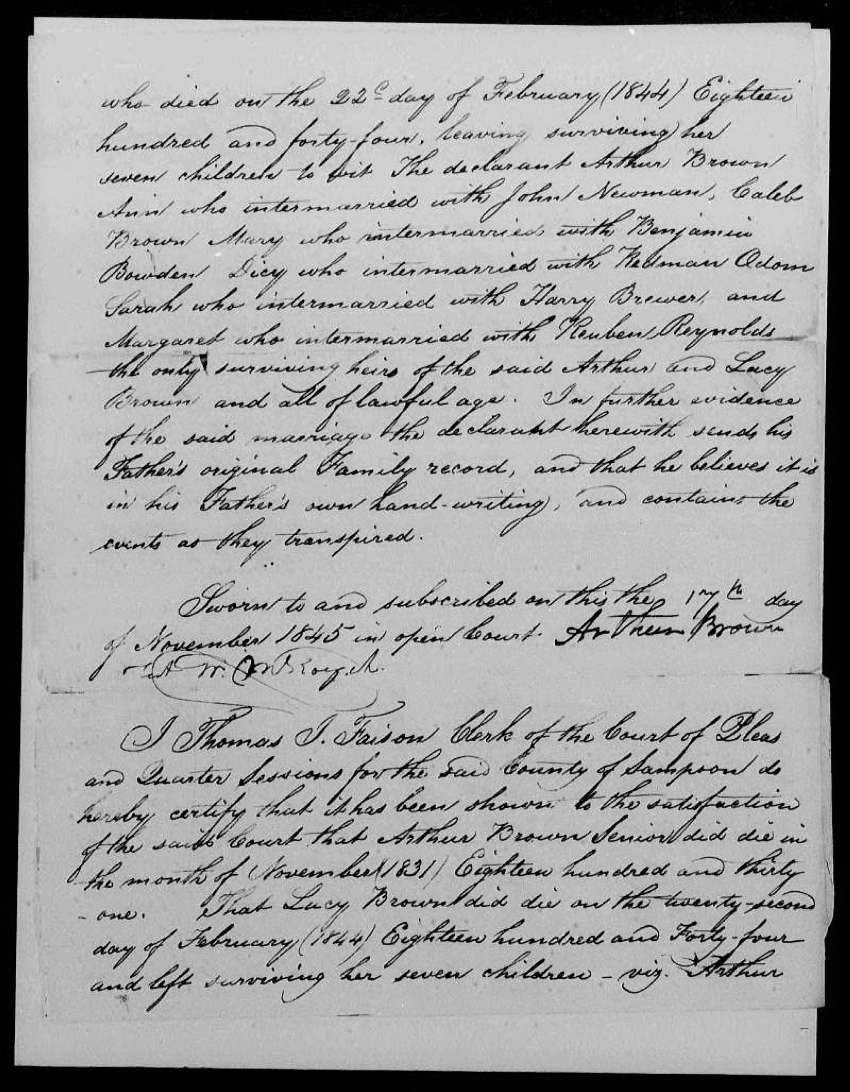 who died on the 22d day of February (1844) Eighteen
hundred and forty-four, leaving surviving her
seven children to wit The declarant Arthur Brown
Ann who intermarried with John Newman, Caleb
Brown Mary who intermarried with Benjamin
Bowden Dicy who intermarried with Redman Odom
Sarah who intermarried with Harry Brewer, and
Margaret who intermarried with Reuben Reynolds
the only surviving heirs of the said Arthur and Lucy
Brown and all of lawful age. In further evidence
of the said marriage the declarant herewith sends his
Father's original Family record, and that he believes it is
in his Father's own hand-writing, and contains the
events as they transpired.
Sworn to and subscribed on this the 17th day
of November 1845 in open Court. Arthur Brown
I Thomas I. Faison Clerk of the Court of Pleas
and Quarter Sessions for the said County of Sampson do
hereby certify that it has been shown to the satisfaction
of the said Court that Arthur Brown Senior did die in
the month of November (1831) Eighteen hundred and thirty
- one. That Lucy Brown did die on the twenty-second
day of February (1844) Eighteen hundred and Forty-four
and left surviving her seven children - viz. Arthur